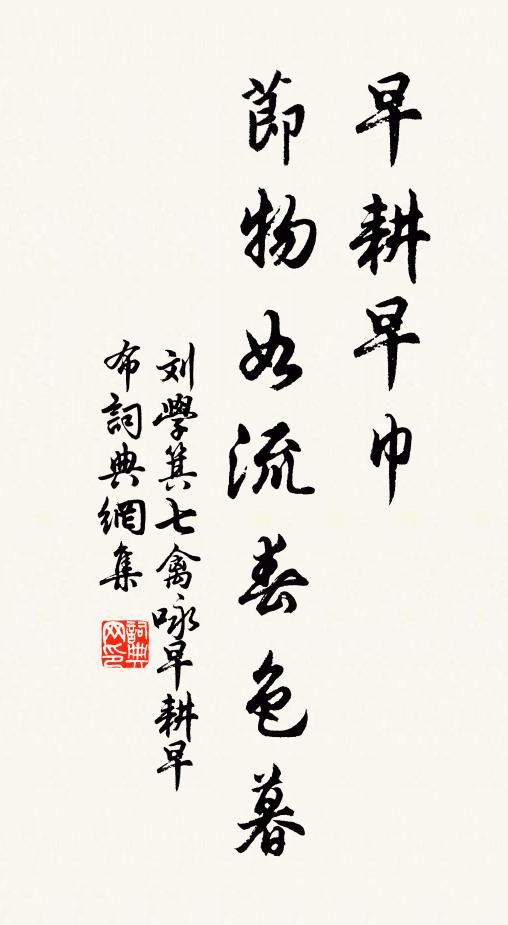 早耕早巾
節物如流春色暮
刘學箕七禽咏早耕早
布詞典網集
詞典
网印